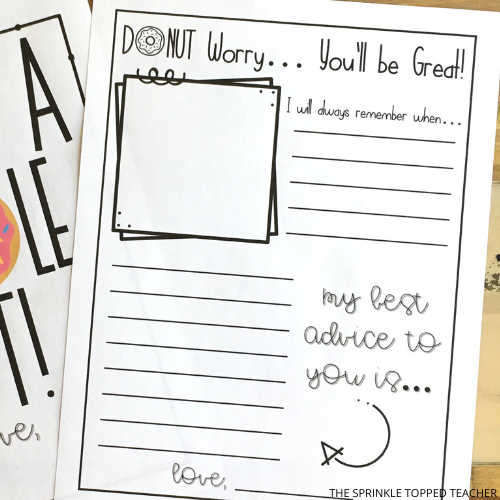 DONUT Worry... You'll be Great!
I will always remember when...
my best
advice to
you is...
love,
A
LE
T!
ve,
THE SPRINKLE TOPPED TEACHER